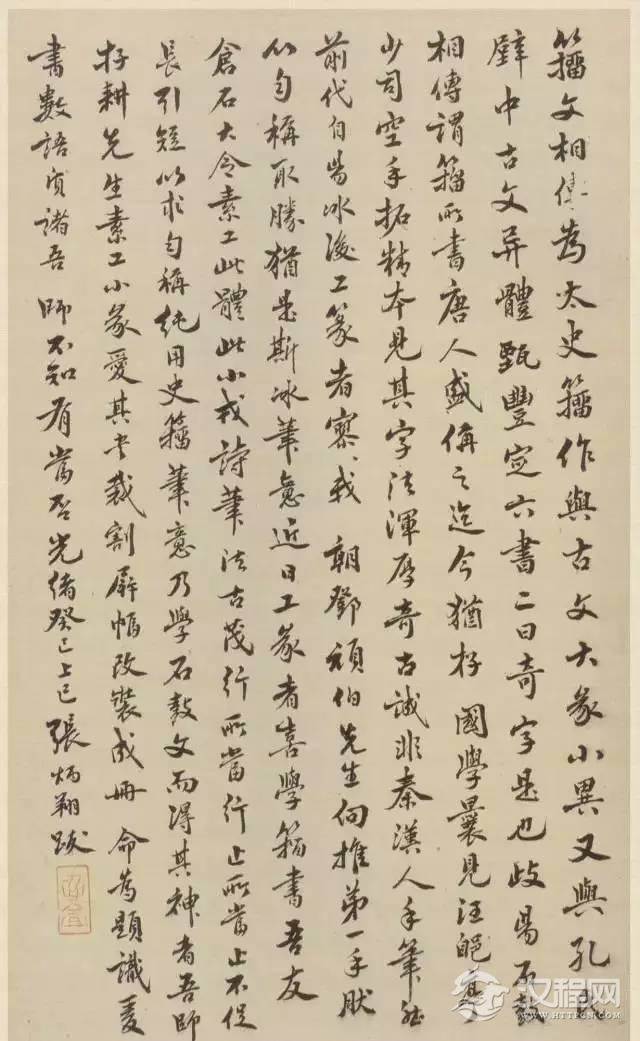 籀文相傳為太史籀作與古文大篆小異又與孔氏
壁中古文异體甄豐定六書二曰奇字是也歧陽石鼓
相傳謂籀所書唐人盛偁之迄今猶存國學曩見汪
少司空手拓精本見其字法渾厚奇古誠非秦漢人手筆
前代自陽冰後工篆者寥〻我朝鄧頑伯先生向推弟一手肰
以勻稱取勝猶是斯冰筆意近日工篆者喜學籀書吾友
倉石大令素工此體此小戎詩筆法古茂行所當行止所當止不促
長引短以求勻稱純用史籀筆意乃學石鼓文而得其神者吾師
存耕先生素工小篆愛其書裁割屏幅改裝成冊命為題識爰
書數語質諸吾師不知有當否光緒癸巳上巳張炳翔跋
汉程网
WWW.HTTPCN.COM